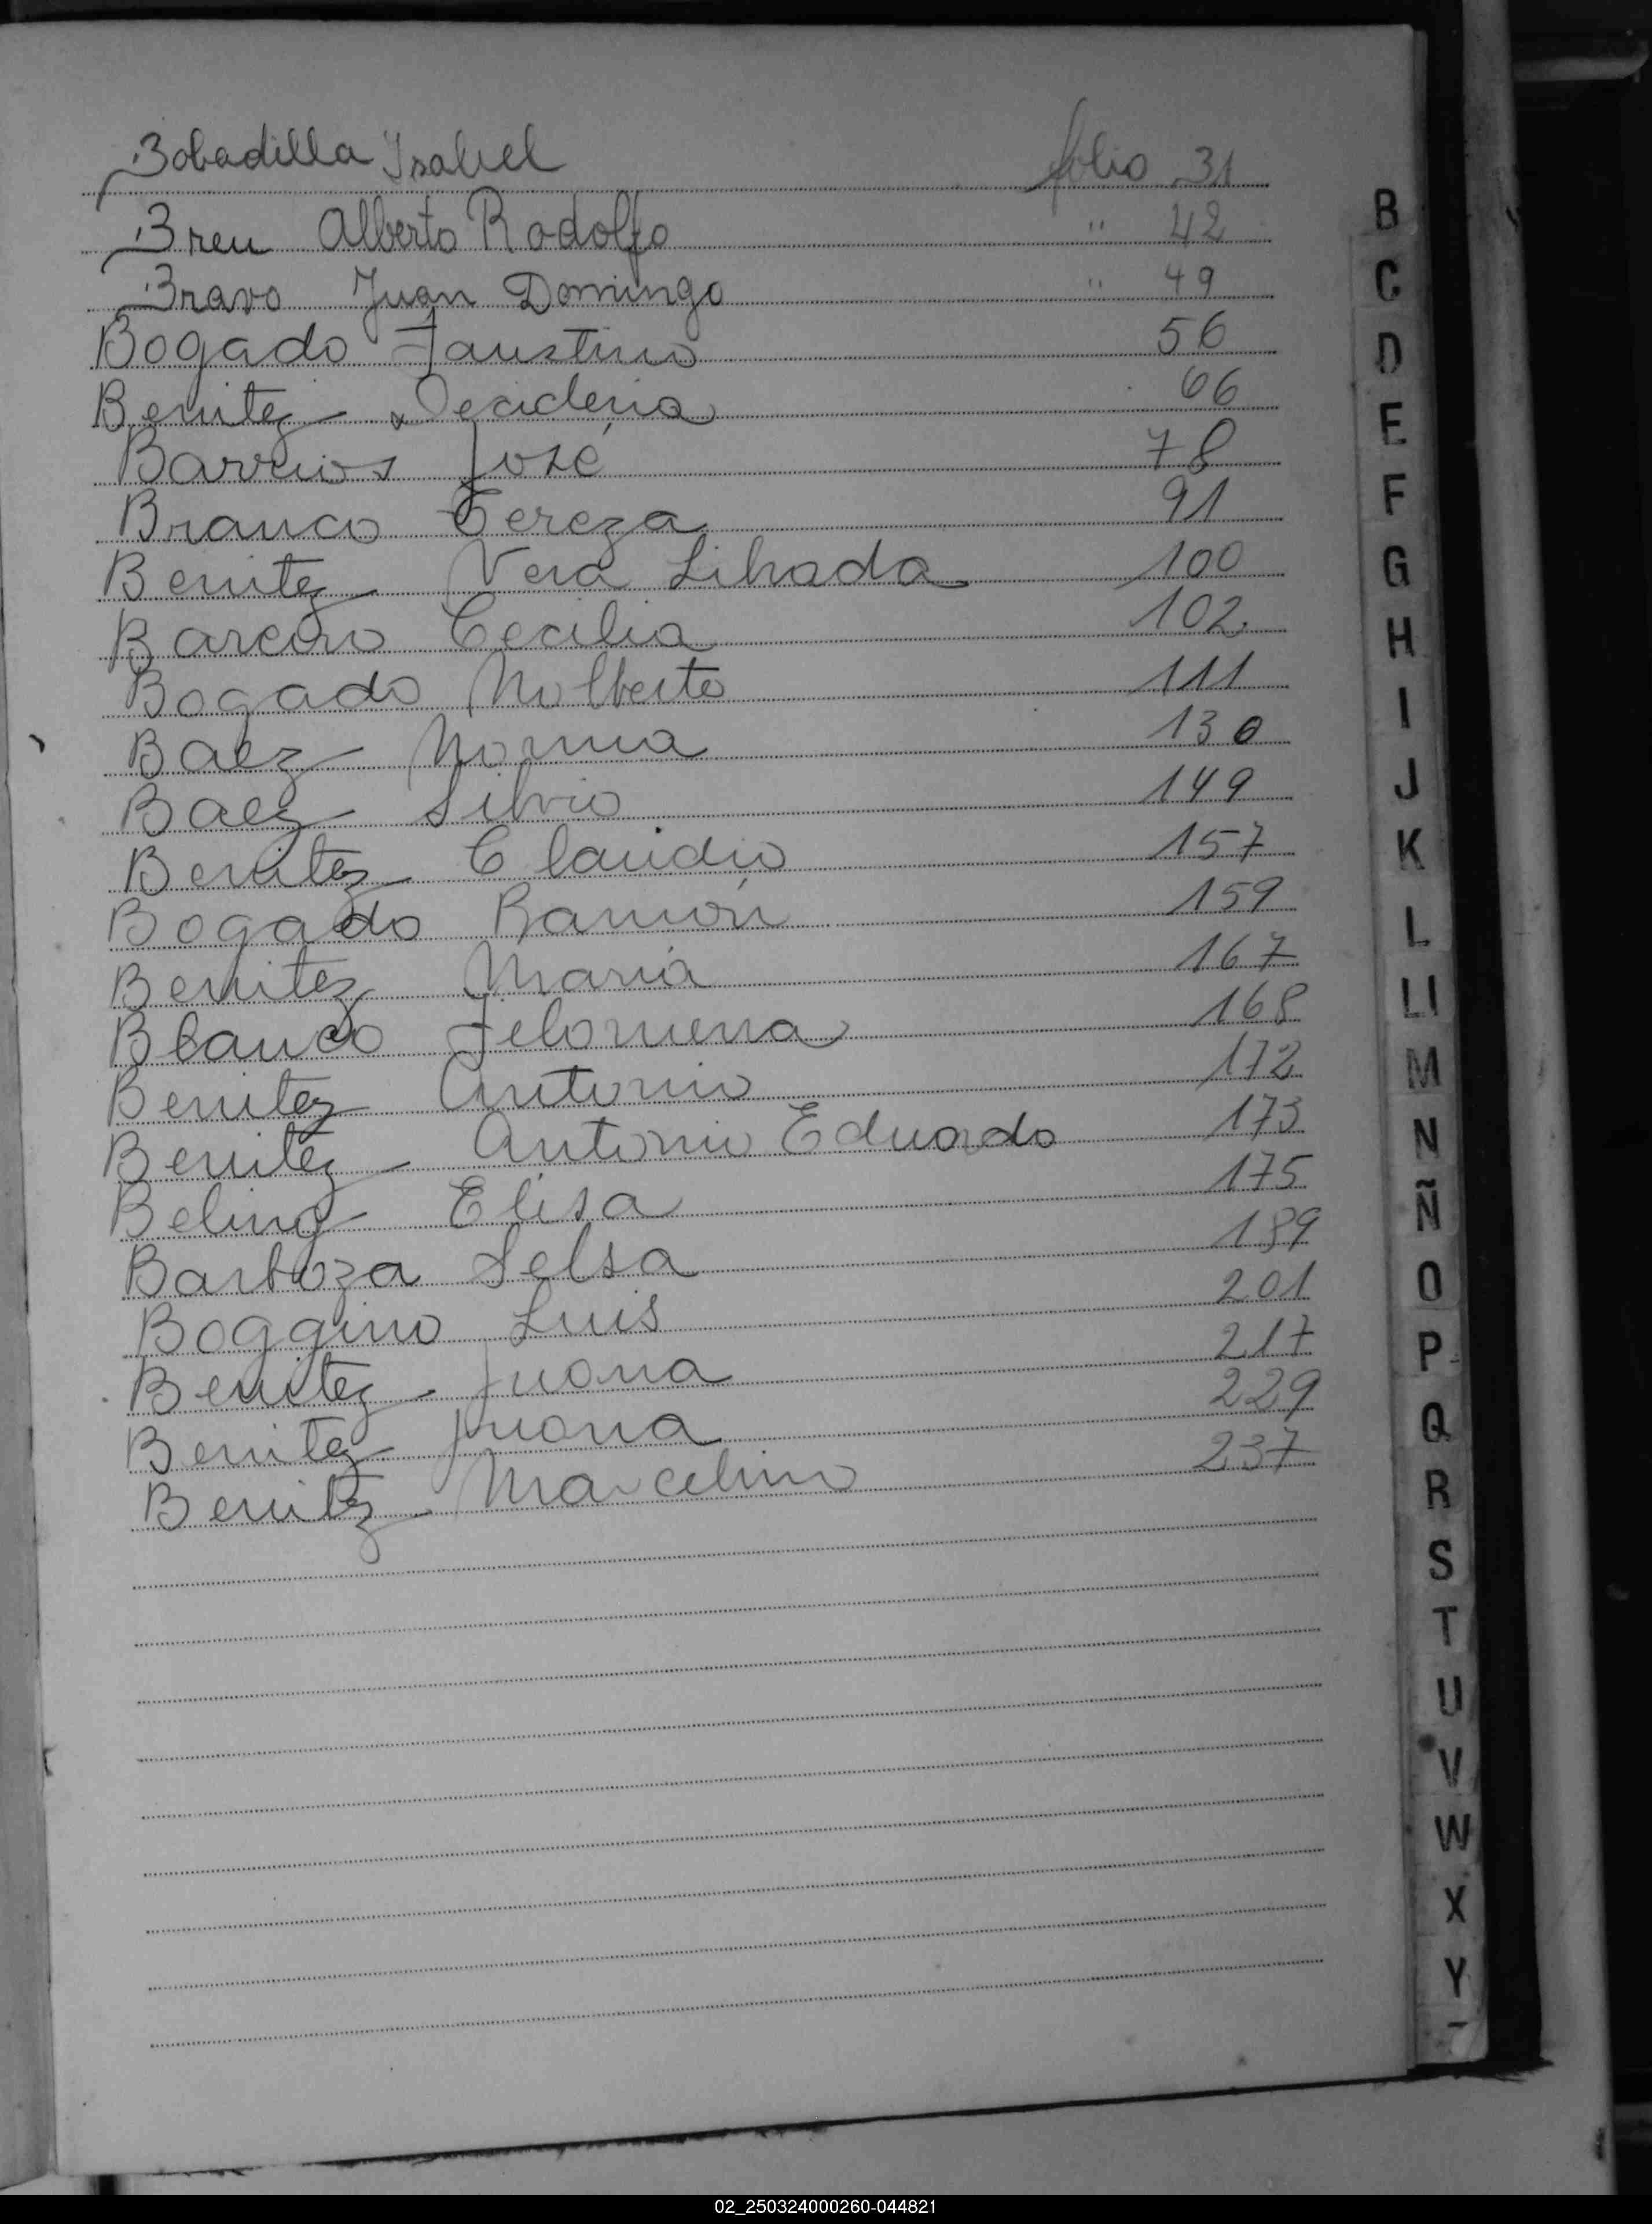 Bobadilla Ysabel folio 31
Breu Alberto Rodolfo " 42
Bravo Juan Domingo " 49
Bogado Faustino 56
Benitez Decideria 66
Barrios José 78
Branco Tereza 91
Benitez Vera Librada 100
Bareiro Cecilia 102
Bogado Nolberto 111
Baez Norma 130
Baez Silvio 149
Benitez Claudio 157
Bogado Ramón 159
Benitez María 167
Blanco Felomena 168
Benitez Antonio 172
Benitez Antonio Eduardo 173
Beling Elisa 175
Barboza Selsa 189
Boggino Luis 201
Benitez Juana 217
Benitez Juana 229
Benitez Marcelino 237
B
C
D
E
F
G
H
I
J
K
L
Ll
M
N
Ñ
O
P
Q
R
S
T
U
V
W
X
Y
02_250324000260-044821